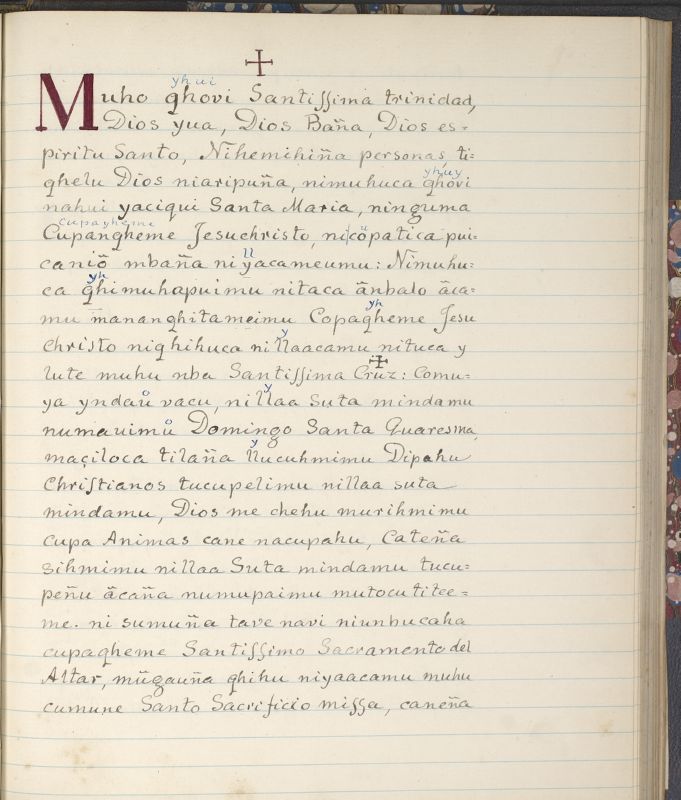 yhui
Muho qhovi Santiſſima trinidad,
Dios yua, Dios Baña, Dios es=
piritu Santo, Nihemihiña personas, ti=
yhuy
qhelu Dios niaripuña, nimuhuca qhovi
nahui yaciqui Santa Maria, ninguma
cupayheme
Cupanqheme Jesuchristo, nicöpatica pui=
ll
caniõ mbaña ni yacameumu: Nimuhu=
yh
ca qhimuhapuimu nitaca ãnbalo ãca=
yh
mu mananqhitameimu Copaqheme Jesu
y
Christo niqhihuca nillaacamu nituca y
lute muhu nba Santiſſima Cruz: Comu=
y
ya yndaũ vacu, nillaa suta mindamu
numauimů Domingo Santa Quaresma,
y
maçiloca tilaña llucuhmimu Dipahu
Chriſtianos tucupelimu nillaa suta
mindamu, Dios me chehu murihmimu
cupa Animas cane nacupahu, Cateña
sihmimu nillaa Suta mindamu tucu=
peñu ãcaña numupaimu mutocutitee=
me. ni sumuña tave navi niunbucaha
cupaqheme Santiſſimo Sacramento del
Altar, mũgauña qhihu niyaacamu muhu
cumune Santo Sacrificio miſſa, caneña